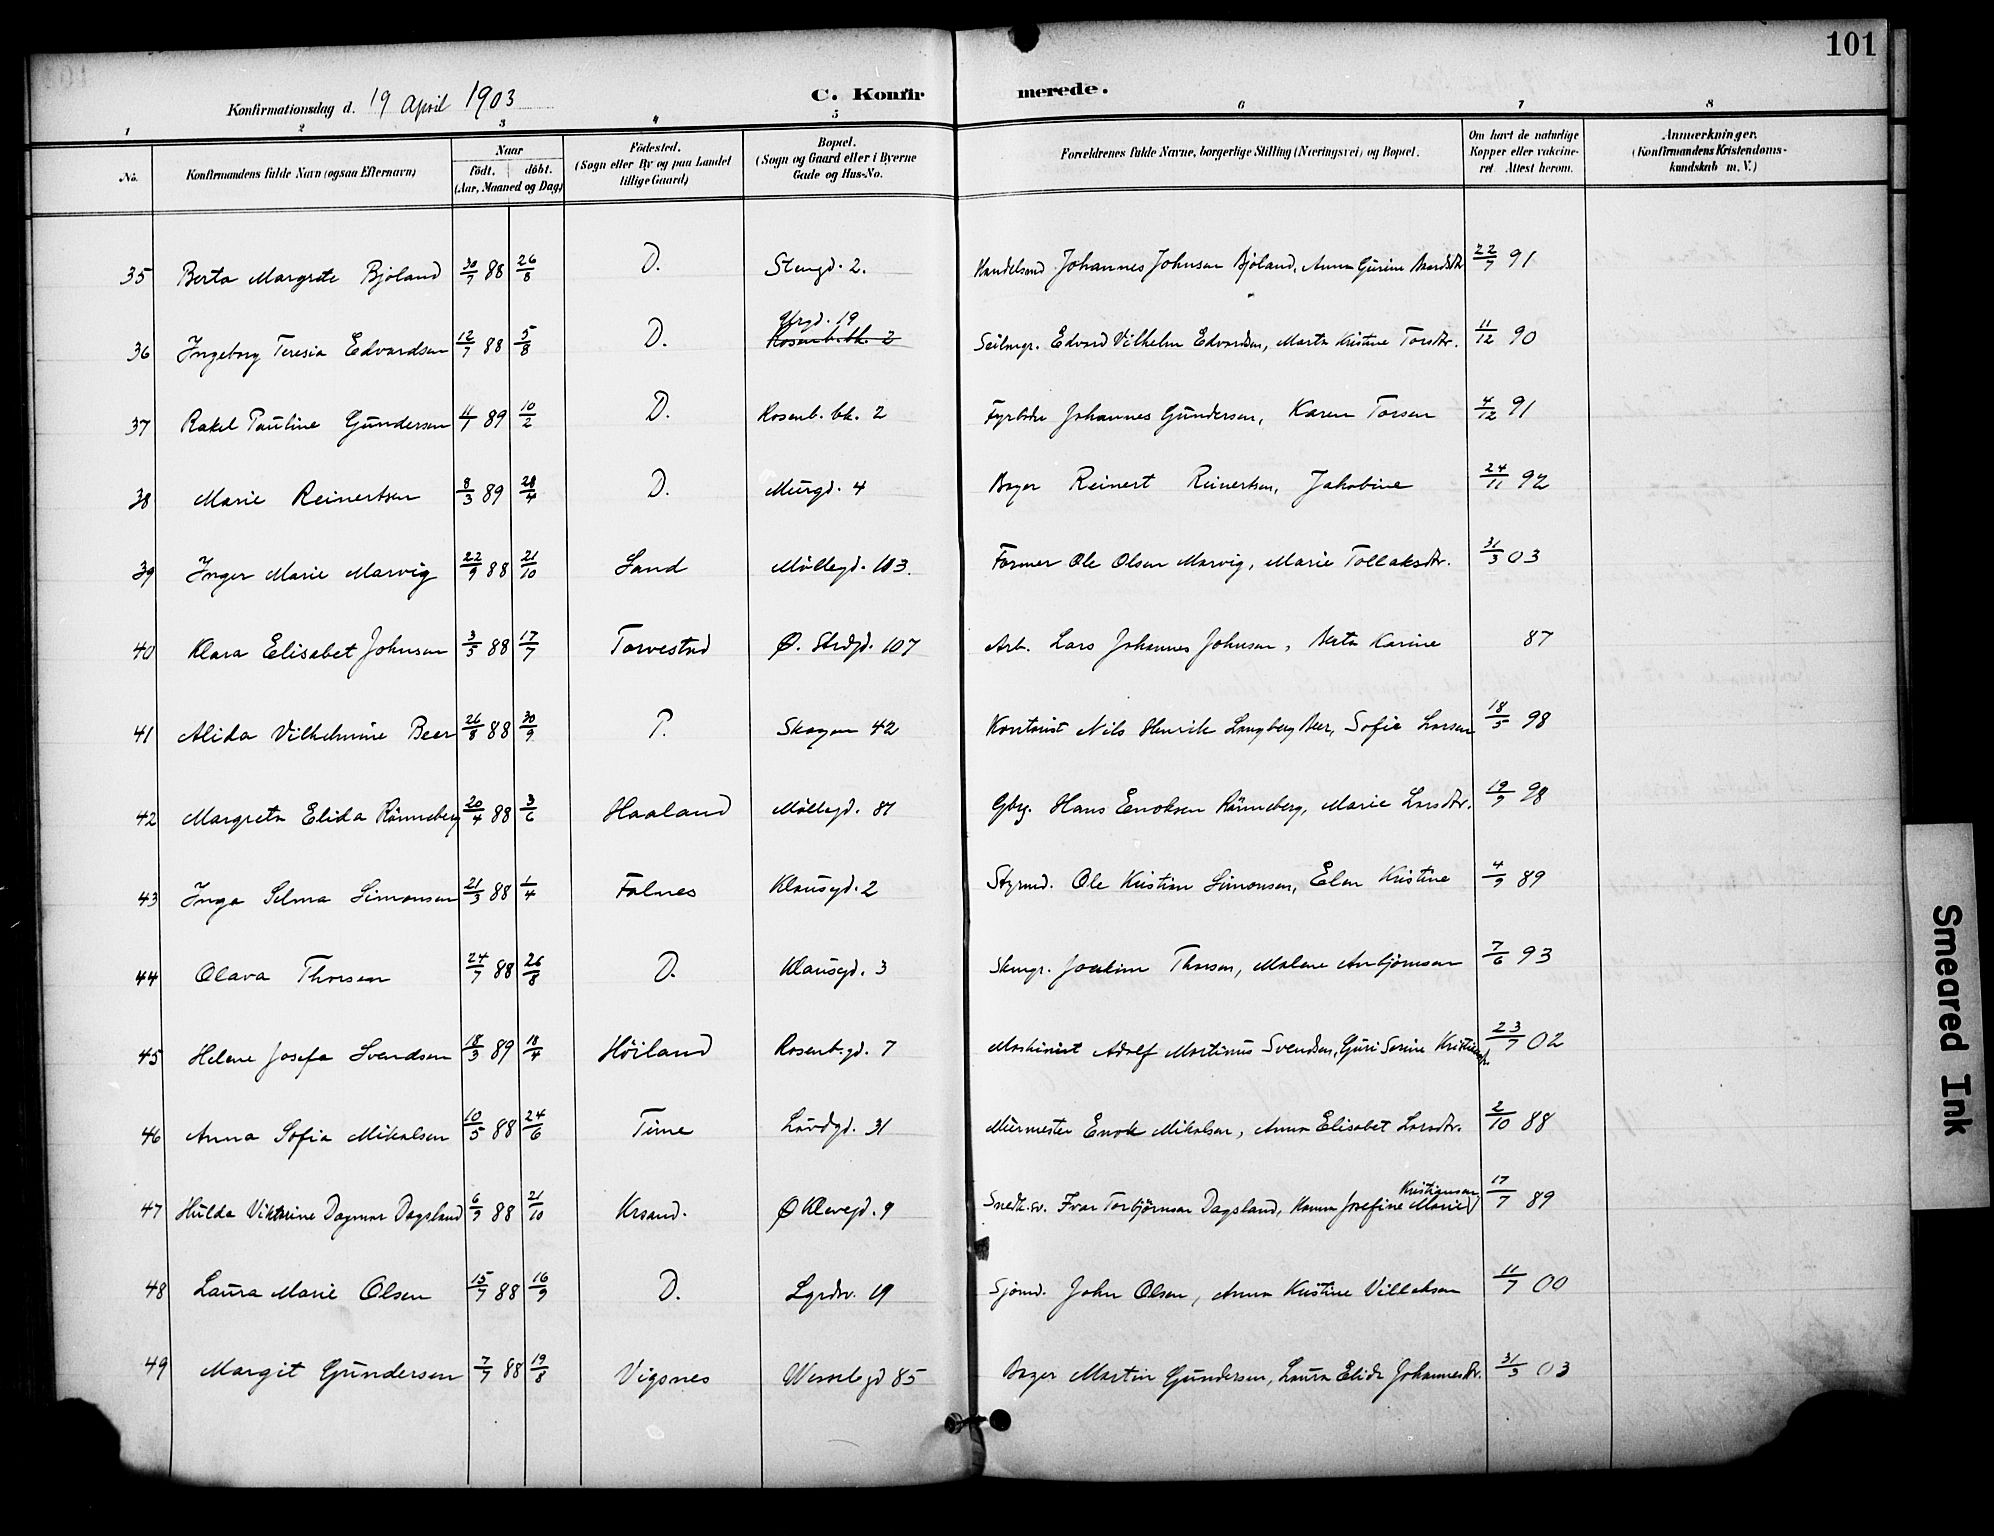 101
Konfirmationsdag d. 19 April 1903
C. Konfirmerede.
1 2 3 4 5 6 7 8
No. Konfirmandens fulde Navn (ogsaa Efternavn) Naar födt. döbt. (Aar, Maaned og Dag) Födested. (Sogn eller By og paa Landet tillige Gaard) Bopæl. (Sogn og Gaard eller i Byerne Gade og Hus-No. Forældrenes fulde Navne, borgerlige Stilling (Næringsvei) og Bopæl. Om havt de naturlige Kopper eller vakcineret. Attest herom. Anmærkninger. (Konfirmandens Kristendomskundskab m. V.)
35 Berta Margrete Bjoland 30/7 88 26/8 D. Stengd. 2. Handelsmd Johannes Johnsen Bjoland, Anna Gurine 22/7 91
36 Ingeborg Teresia Edvardsen 12/7 88 5/8 D. Øfrgd. 19 Rosenb.bk. 2 Seilmgr. Edvard Vilhelm Edvardsen, Marta Kristine Torsdtr. 11/12 90
37 Rakel Pauline Gundersen 4/1 89 10/2 D. Rosenb. bk. 2 Fyrbdr Johannes Gundersen, Karen Torsen 4/12 91
38 Marie Reinertsen 8/3 89 28/4 D. Murgd. 4 Bager Reinert Reinertsen, Jakobine 24/11 92
39 Inger Marie Marvig 22/9 88 21/10 Sand Möllegd. 103. Former Ole Olsen Marvig, Marie Tollaksdtr. 31/3 03
40 Klara Elisabet Johnsen 3/5 88 17/7 Torvestad Ø. Strdgd. 107 Arb. Lars Johannes Johnsen, Berta Karine 87
41 Alida Vilhelmine Beer 26/8 88 30/9 P. Skagen 42 Kontorist Nils Henrik Langberg Beer, Sofie Larsen 18/5 98
42 Margreta Elida Rönneberg 20/4 88 3/6 Haaland Möllegd. 81 Gbrg. Hans Enoksen Rönneberg, Marie Larsdtr. 19/9 98
43 Inga Selma Simonsen 21/3 88 1/4 Falnes Klausgd. 2 Styrmd. Ole Kristian Simonsen, Elen Kristine 4/9 89
44 Olava Thorsen 24/7 88 26/8 D. Klausgd. 3 Skmgr. Joakim Thorsen, Malene Anbjörnsen 7/6 93
45 Helene Josefa Svendsen 18/3 89 18/4 Höiland Rosenb.gd. 7 Maskinist Adolf Martinus Svendsen, Guri Serine 23/7 02
46 Anna Sofia Mikalsen 10/5 88 24/6 Time Lövdgd. 31 Murmester Enok Mikalsen, Anna Elisabet Larsdtr. 2/10 88
47 Hulda Viktorine Dagmar Dagsland 6/9 88 21/10 Krsand. Ø Klevegd. 9 Snedk.sv. Ivar Torbjörnsen Dagsland, Hanna Josefine Marie Kristiansen 17/7 89
48 Laura Marie Olsen 15/7 88 16/9 D. Lgrdsv. 19 Sjömd. John Olsen, Anna Kristine Villaksen 11/7 00
49 Margit Gundersen 7/7 88 19/8 Vigsnes Wesselsgd 85 Bager Martin Gundersen, Laura Elida Johannesdtr. 31/3 03
Smeared Ink